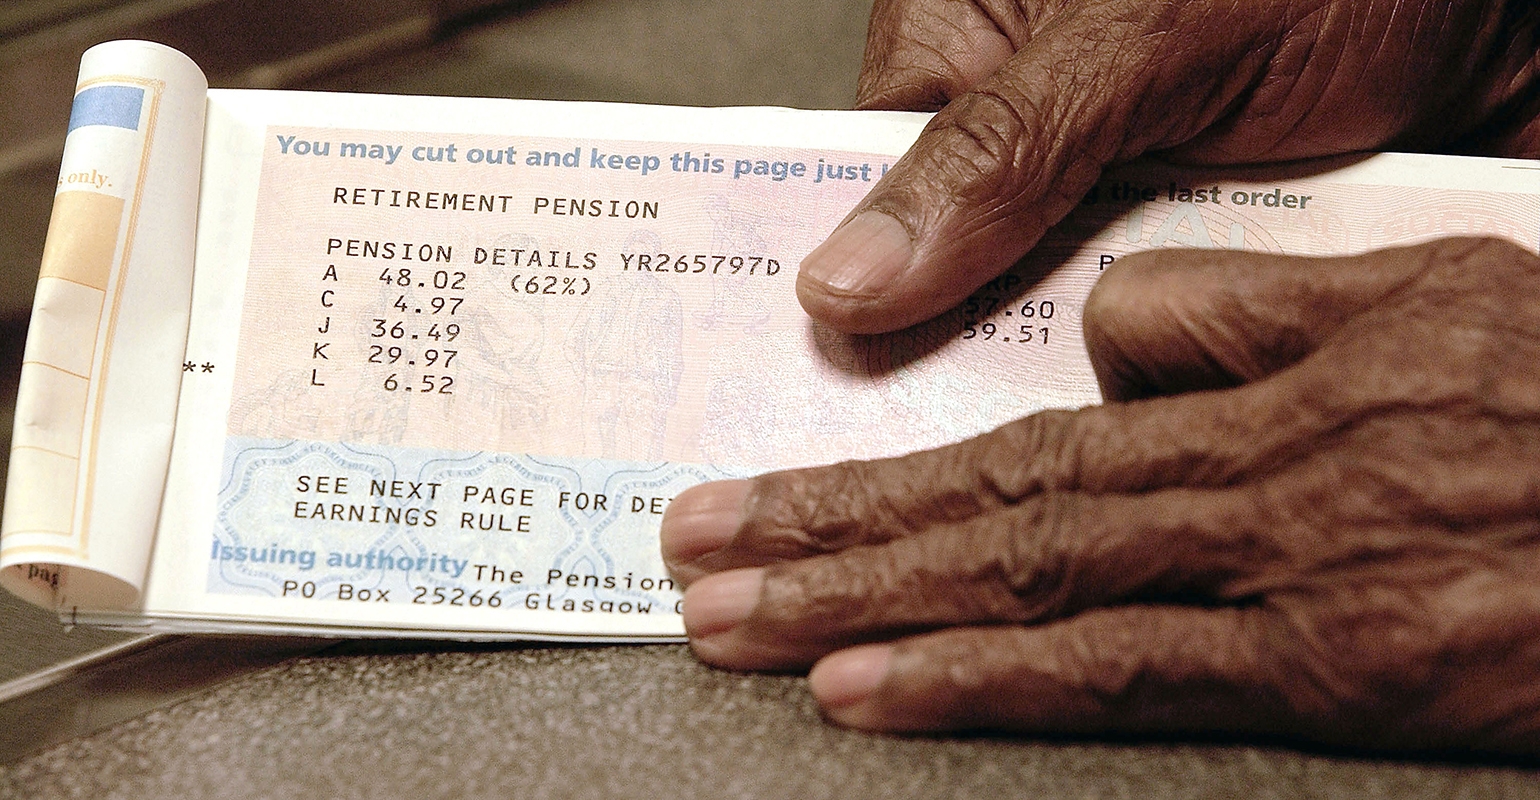 only.
You may cut out and keep this page just
the last order
RETIREMENT PENSION
PENSION DETAILS YR265797D
A 48.02 (62%)
C 4.97
J 36.49
K 29.97
L 6.52
RP
57.60
59.51
**
SEE NEXT PAGE FOR
EARNINGS RULE
Issuing authority The Pension
PO Box 25266 Glasgow
pag